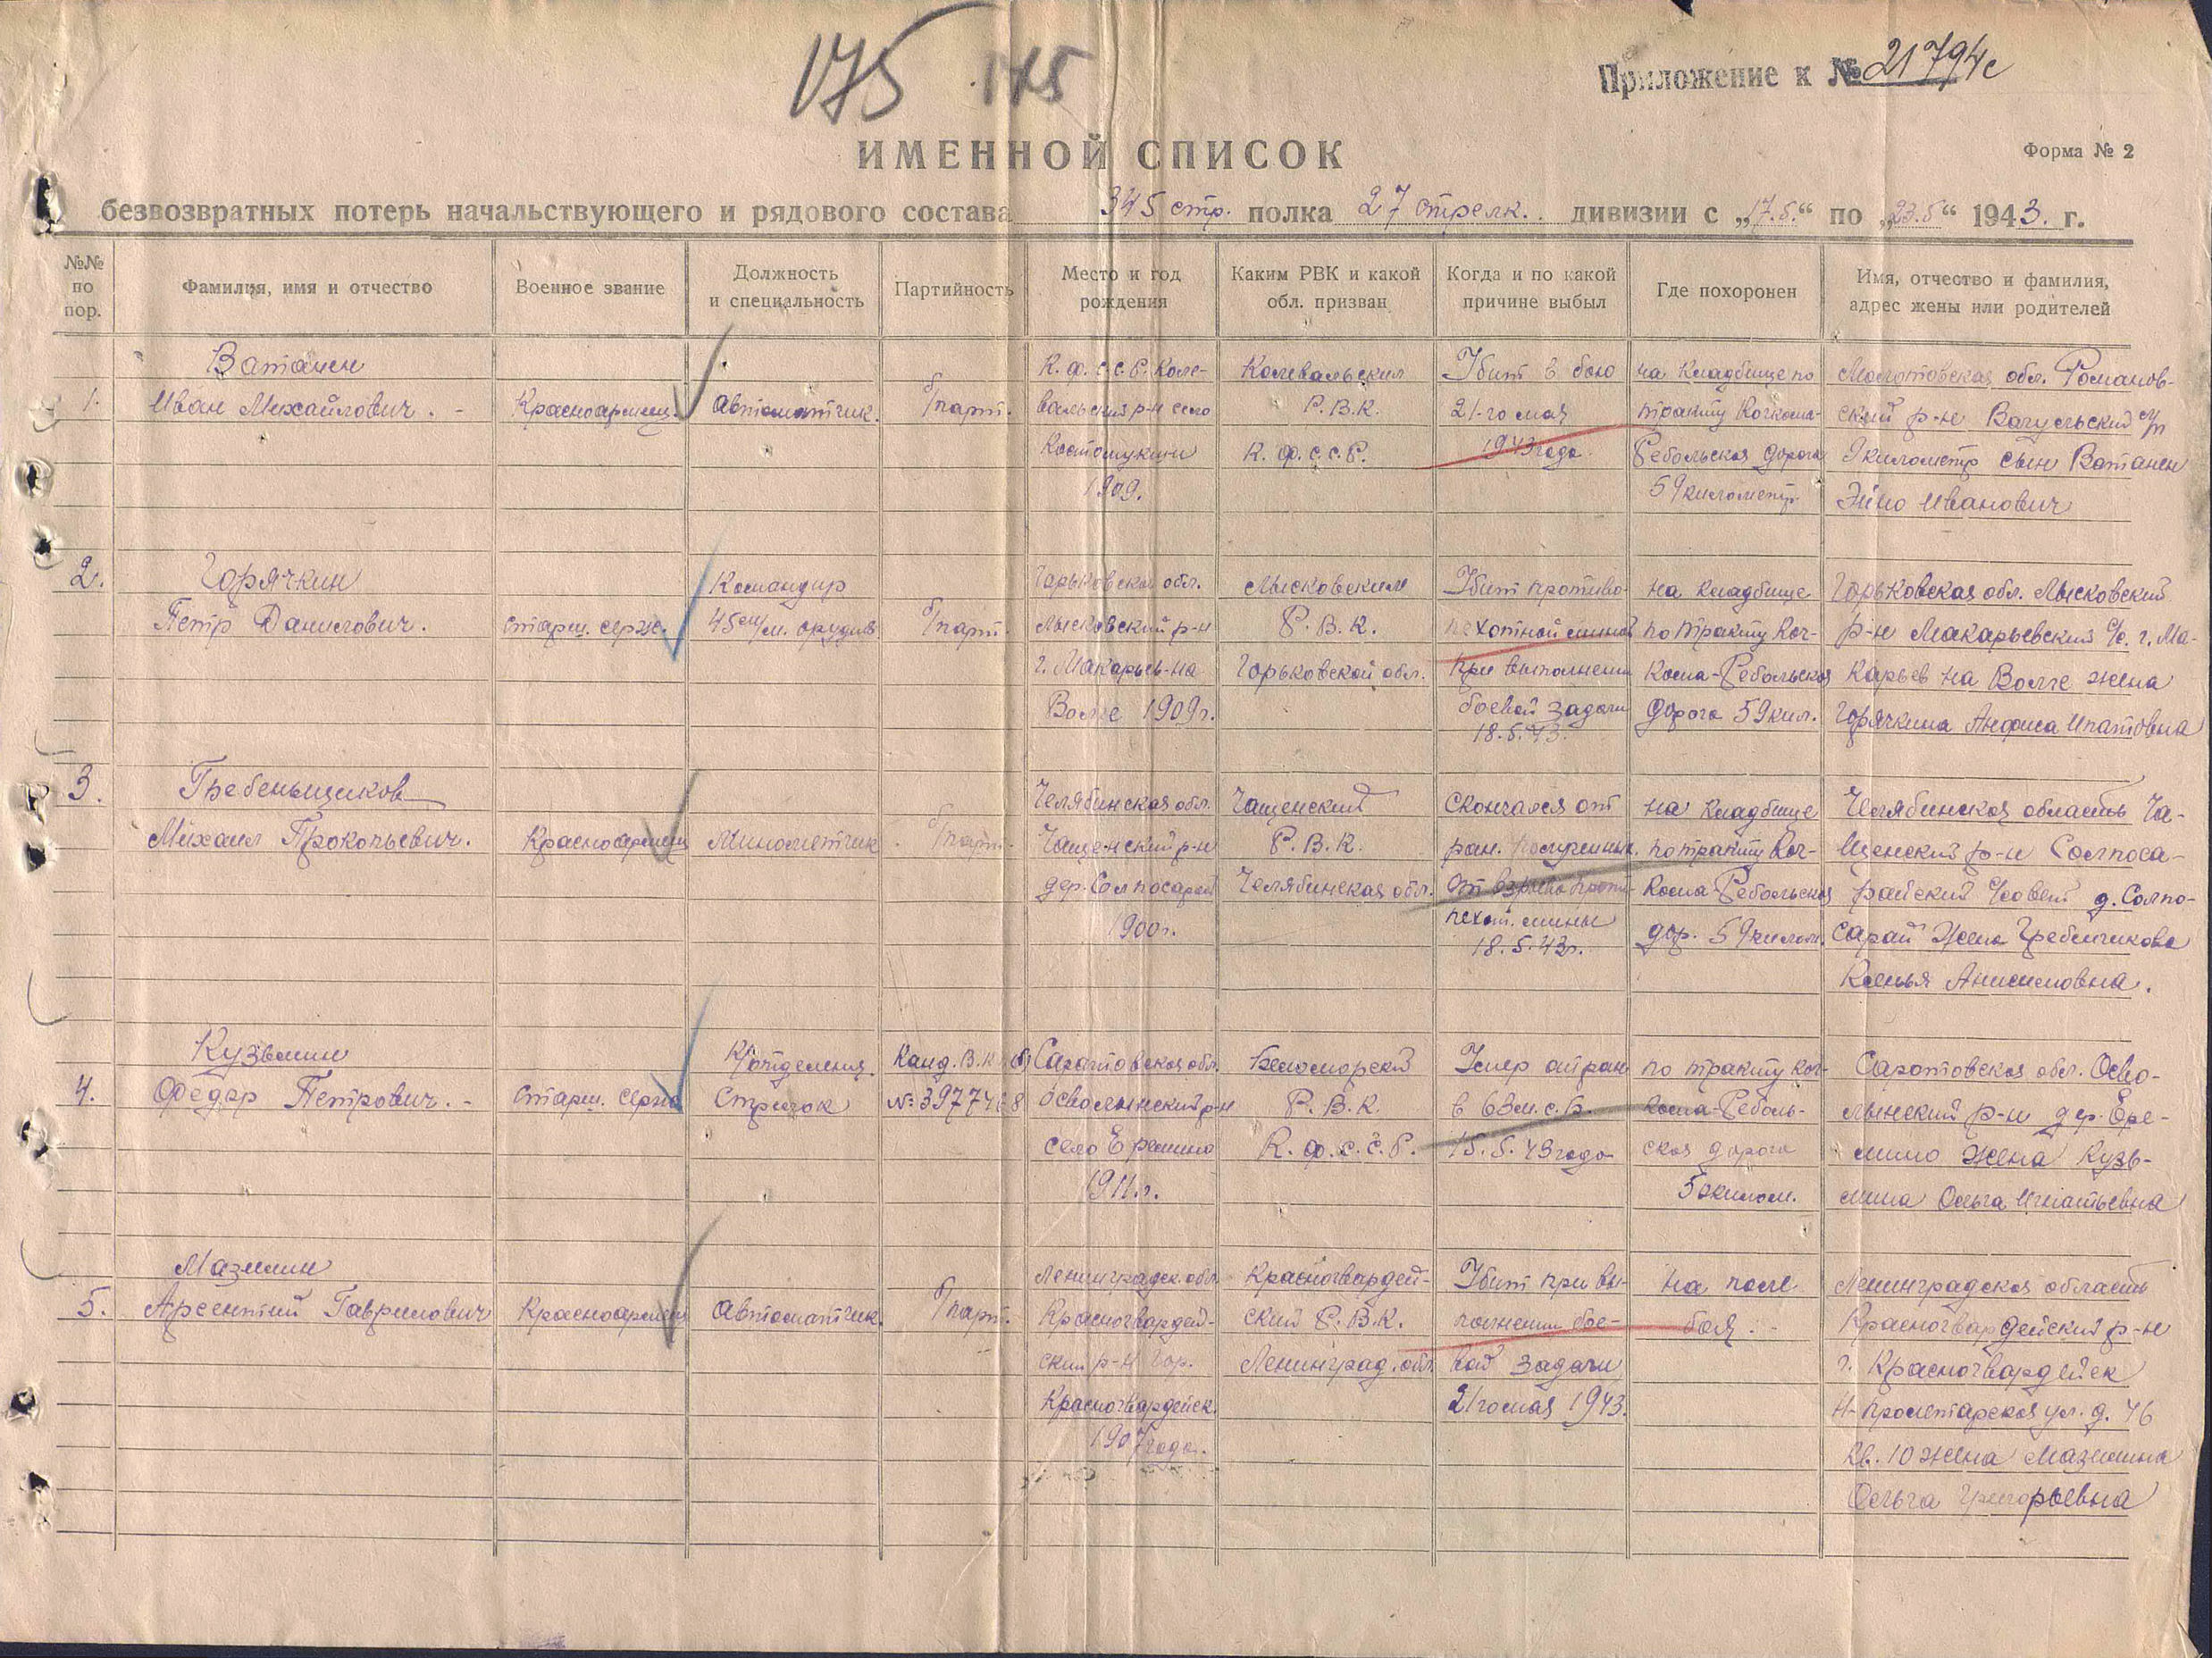 175 175
Приложение к № 21794с
ИМЕННОЙ СПИСОК
Форма № 2
безвозвратных потерь начальствующего и рядового состава 345 стр. полка 27 стрелк. дивизии с „17.5.“ по „23.5“ 1943. г.
№№ по пор.
Фамилия, имя и отчество
Военное звание
Должность и специальность
Партийность
Место и год рождения
Каким РВК и какой обл. призван
Когда и по какой причине выбыл
Где похоронен
Имя, отчество и фамилия, адрес жены или родителей
1.
Ватанен
Иван Михайлович.
Красноармеец.
Автоматчик.
б/парт.
К.ф.с.с.р. Коле-
вальский р-н село
Костомукши
1909.
Калевальский
Р.В.К.
К.ф.с.с.р.
Убит в бою
21-го мая
1943 года.
на кладбище по
тракту Кочкома-
Ребольская дорога
59 километр.
Молотовская обл. Романов-
ский р-н Вагульский
9 километр сын Ватанен
Эйно Иванович
2.
Горячкин
Петр Данилович.
старш. серж.
Командир
45 м/м. орудия
б/парт.
Горьковская обл.
Лысковский р-н
г. Макарьев-на
Волге 1909г.
Лысковским
Р.В.К.
Горьковской обл.
Убит противо-
пехотной миной
при выполнении
боевой задачи
18.5.43.
на кладбище
по тракту Коч-
кома-Ребольская
дорога 59 кил.
Горьковская обл. Лысковский
р-н Макарьевский с/с. г. Ма-
карьев на Волге жена
Горячкина Анфиса Ипатовна
3.
Гребеньщиков
Михаил Прокопьевич.
Красноармеец
Минометчик
б/парт.
Челябинская обл.
Чащенский р-н
дер. Солпосарай
1900г.
Чащенский
Р.В.К.
Челябинская обл.
Скончался от
ран. полученных
от взрыва против-
пехот. мины
18.5.43г.
на кладбище
по тракту Коч-
кома-Ребольская
дор. 59 килом.
Челябинская область Ча-
щенский р-н Солпоса-
райский с/совет д. Солпо-
сарай Жена Гребенчикова
Ксенья Анисимовна.
4.
Кузьмин
Федор Петрович.
Старш. серж
К/отделения.
Стрелок
Канд. В.К.П(б)
№ 3977468
Саратовская обл.
Осволынский р-н
село Еремино
1911.г.
Беломорский
Р.В.К.
К.ф.с.с.р.
Умер от ран
в 63 м.с.б.
15.5.43 года
по тракту Коч-
кома-Реболь-
ская дорога
5 килом.
Саратовская обл. Осво-
лынский р-н дер. Ере-
мино Жена Кузь-
мина Ольга Игнатьевна
5.
Мазилин
Арсентий Гаврилович
Красноармеец
Автоматчик.
б/парт.
Ленинградск. обл
Красногвардей-
ский р-н Гор.
Красногвардейск.
1907 года.
Красногвардей-
ский Р.В.К.
Ленинград. обл
Убит при вы-
полнении бое-
вой задачи
21 го мая 1943.
на поле
боя.
Ленинградская область
Красногвардейский р-н
г. Красногвардейск
Н-пролетарская ул. д. 46
кв. 10 Жена Мазилина
Ольга Григорьевна